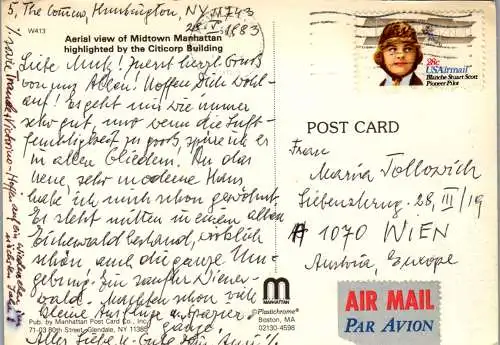 5, The Comus, Huntington, NY 11743
28.V.1983
W413
Aerial view of Midtown Manhattan
highlighted by the Citicorp Building
Liebe Mutz! Zuerst herzl. Gruß
von uns Allen! Hoffen Dich wohl-
auf! Es geht uns wie immer
sehr gut, nur wenn die Luft-
feuchtigkeit zu groß, spüre ich es
in allen Gliedern. An das
neue, sehr moderne Haus
habe ich mich schon gewöhnt.
Es steht mitten in einem alten
Eichenwaldbestand, wirklich
schön auch die ganze Um-
gebung! Ein sanfter Wiener-
wald. Machten schon viele
kleine Ausflüge
Alles Liebe u. Gute
28c
USAirmail
Blanche Stuart Scott
Pioneer Pilot
POST CARD
Frau
Maria Tollowich
Siebensterng. 28, III/19
A 1070 WIEN
Austria, Europe
MANHATTAN
© Plastichrome®
Boston, MA
02130-4598
AIR MAIL
PAR AVION
Pub. by Manhattan Post Card Co., Inc.
71-03 80th Street, Glendale, NY 11385